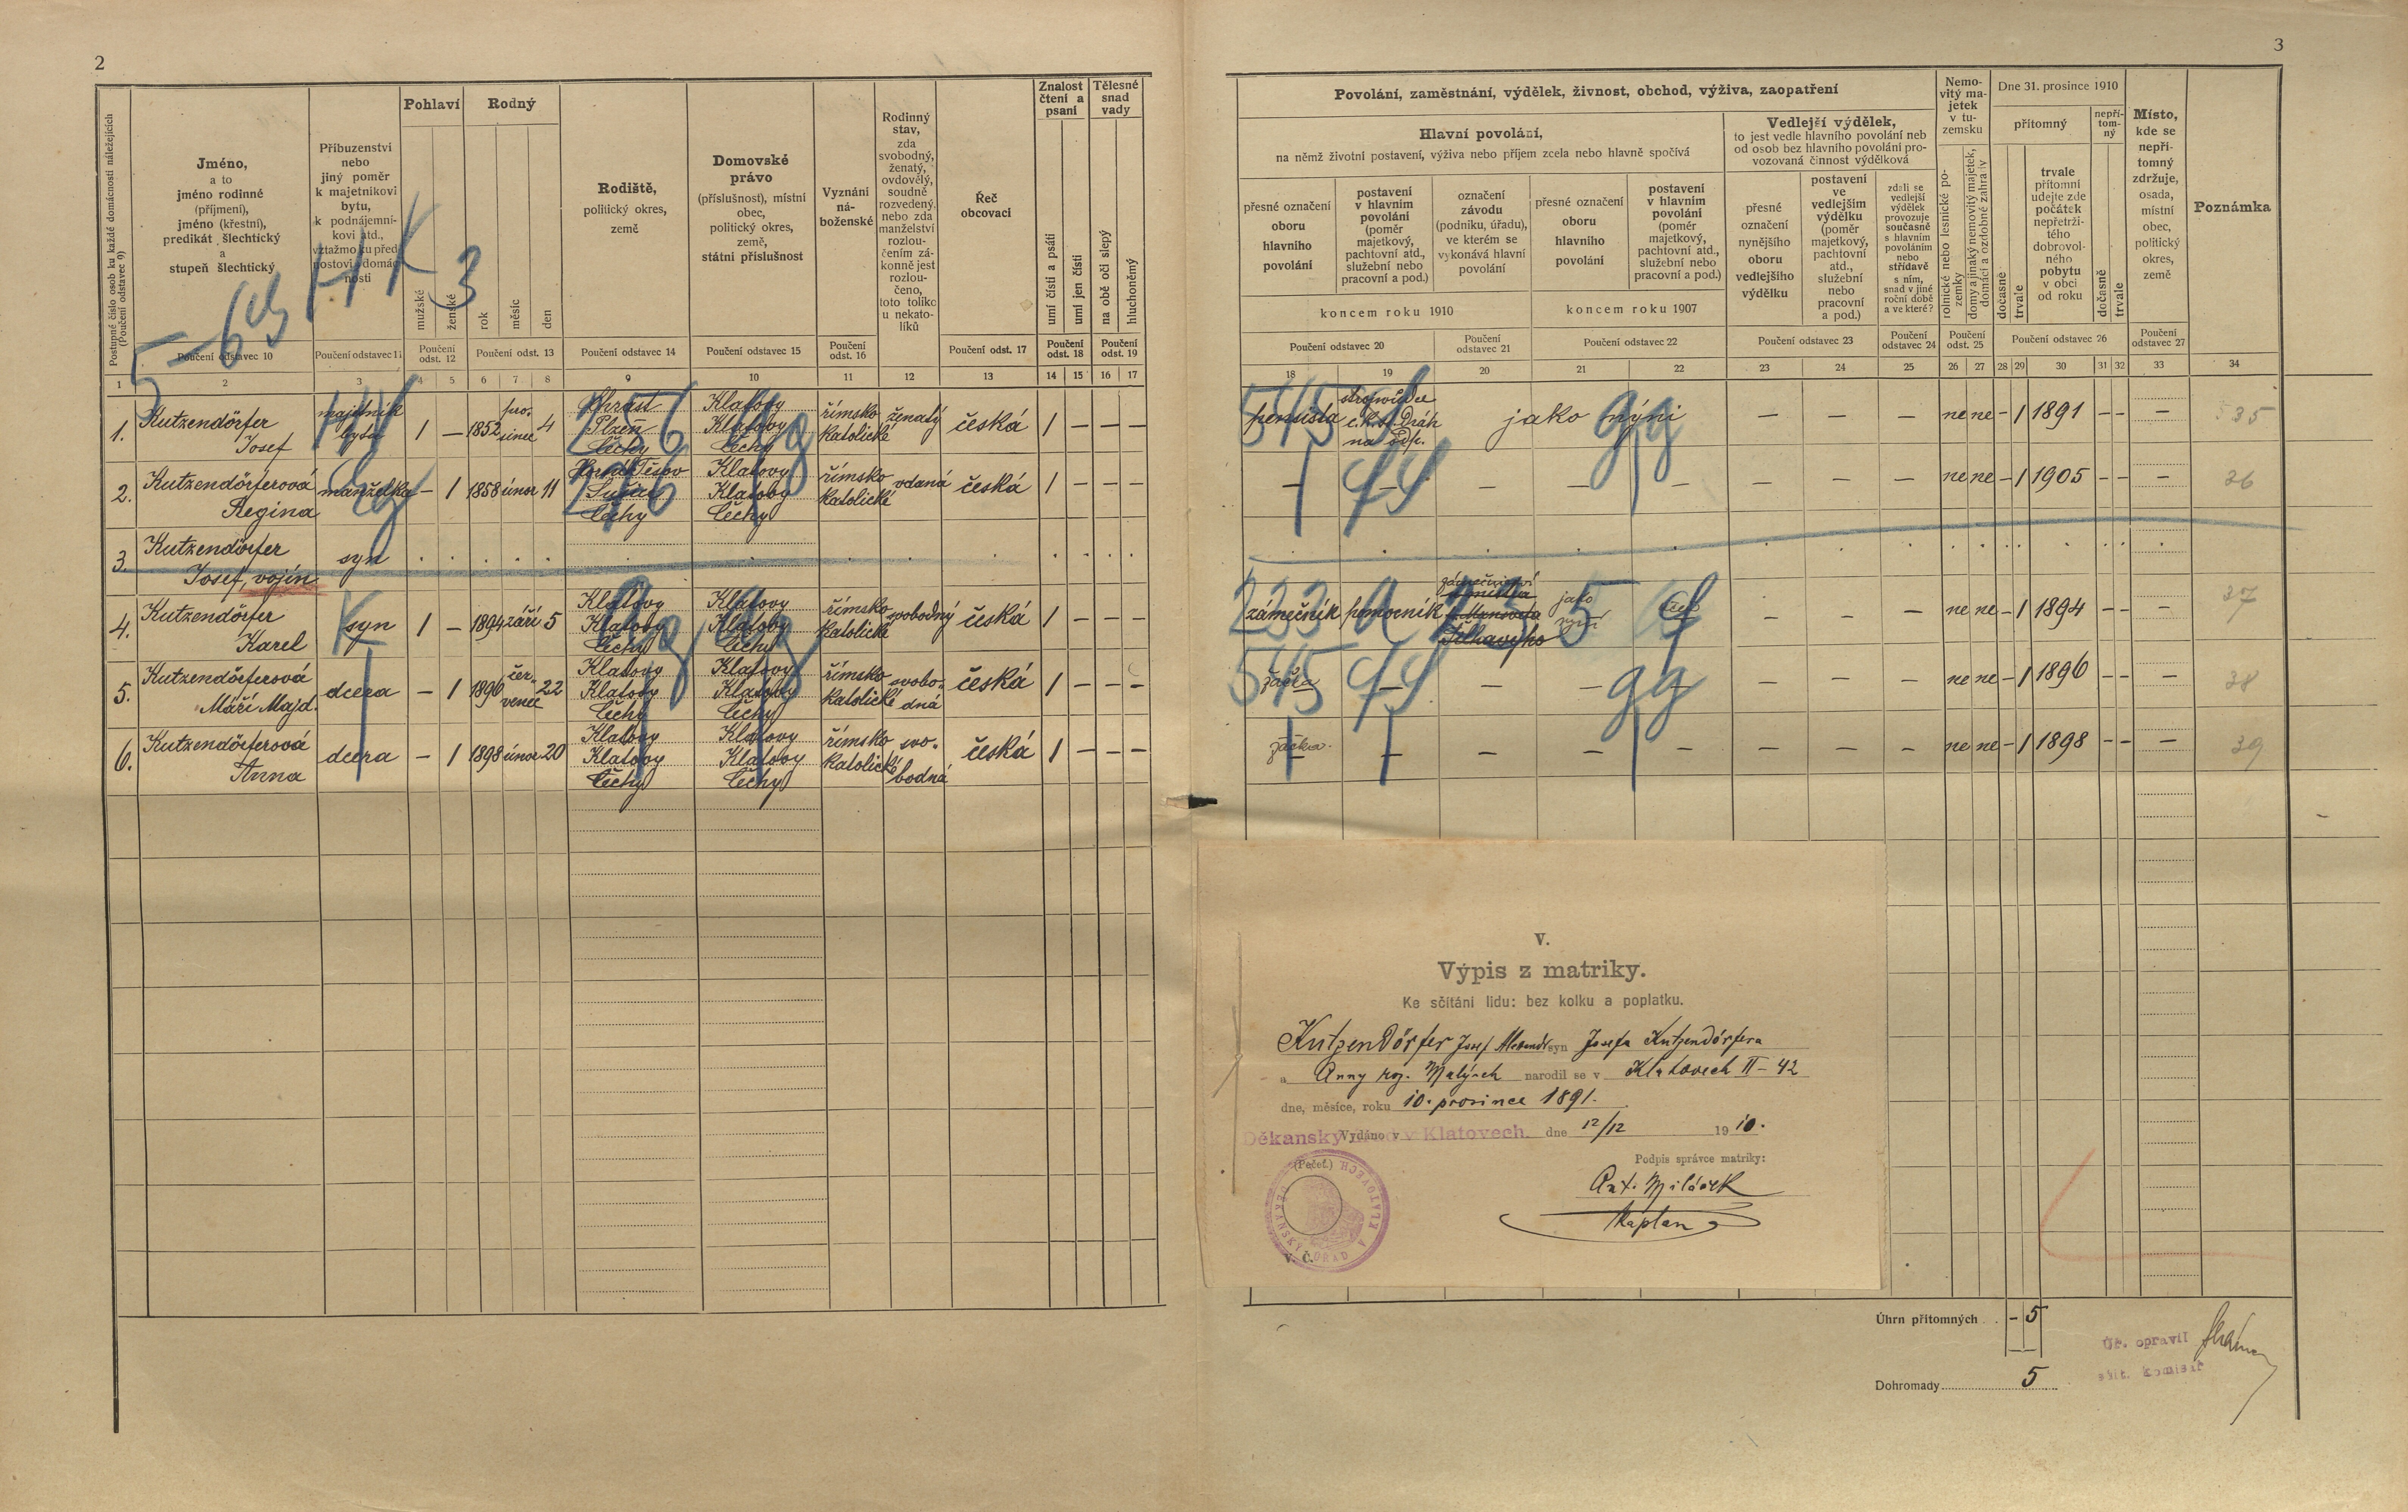 2
Postupné číslo osob ku každé domácnosti náležejících
(Poučení odstavec 9)
Jméno,
a to
jméno rodinné
(příjmení),
jméno (křestní),
predikát šlechtický
a
stupeň šlechtický
Příbuzenství
nebo
jiný poměr
k majetníkovi
bytu,
k podnájemní-
kovi atd.,
vztažmo ku před-
postovi domác-
nosti
Pohlaví
mužské
ženské
Rodný
rok
měsíc
den
Rodiště,
politický okres,
země
Domovské
právo
(příslušnost), místní
obec,
politický okres,
země,
státní příslušnost
Vyznání
ná-
boženské
Rodinný
stav,
zda
svobodný,
ženatý,
ovdovělý,
soudně
rozvedený,
nebo zda
manželství
rozlou-
čením zá-
konně jest
rozlou-
čeno,
toto toliko
u nekato-
líků
Řeč
obcovací
Znalost
čtení a
psaní
umí čísti a psáti
umí jen čísti
Tělesné
snad
vady
na obě oči slepý
hluchoněmý
Poučení odstavec 10
Poučení odstavec 11
Poučení
odst. 12
Poučení odst. 13
Poučení odstavec 14
Poučení odstavec 15
Poučení
odst. 16
Poučení odst. 17
Poučení
odst. 18
Poučení
odst. 19
1 2 3 4 5 6 7 8 9 10 11 12 13 14 15 16 17
1. Kutzendörfer Josef majetník bytu 1 – 1852 prosinec 4 Chrást Plzeň Čechy Klatovy Klatovy Čechy římsko katolické ženatý česká 1 – – –
2. Kutzendörferová Regina manželka – 1 1858 únor 11 Čechy Klatovy Klatovy Čechy římsko katolické vdaná česká 1 – – –
3. Kutzendörfer Josef, vojín syn
4. Kutzendörfer Karel syn 1 – 1894 září 5 Klatovy Klatovy Čechy Klatovy Klatovy Čechy římsko katolické svobodný česká 1 – – –
5. Kutzendörferová Máří Majd. dcera – 1 1896 čer-venec 22 Klatovy Klatovy Čechy Klatovy Klatovy Čechy římsko katolické svobo-dná česká 1 – – –
6. Kutzendörferová Anna dcera – 1 1898 únor 20 Klatovy Klatovy Čechy Klatovy Klatovy Čechy římsko katolické svo-bodná česká 1 – – –
3
Povolání, zaměstnání, výdělek, živnost, obchod, výživa, zaopatření
Hlavní povolání,
na němž životní postavení, výživa nebo příjem zcela nebo hlavně spočívá
Vedlejší výdělek,
to jest vedle hlavního povolání neb
od osob bez hlavního povolání pro-
vozovaná činnost výdělková
přesné označení
oboru
hlavního
povolání
postavení
v hlavním
povolání
(poměr
majetkový,
pachtovní atd.,
služební nebo
pracovní a pod.)
označení
závodu
(podniku, úřadu),
ve kterém se
vykonává hlavní
povolání
přesné označení
oboru
hlavního
povolání
postavení
v hlavním
povolání
(poměr
majetkový,
pachtovní atd.,
služební nebo
pracovní a pod.)
koncem roku 1910
koncem roku 1907
přesné
označení
nynějšího
oboru
vedlejšího
výdělku
postavení
ve
vedlejším
výdělku
(poměr
majetkový,
pachtovní
atd.,
služební
nebo
pracovní
a pod.)
zdali se
vedlejší
výdělek
provozuje
současně
s hlavním
povoláním
nebo
střídavě
s ním,
snad v jiné
roční době
a ve které?
Nemo-
vitý ma-
jetek
v tu-
zemsku
rolnické nebo lesnické po-
zemky
domy a jinaký nemovitý majetek,
domácí a ozdobné zahrady
Dne 31. prosince 1910
přítomný
dočasně
trvale
trvale
přítomní
udejte zde
počátek
nepřetrži-
tého
dobrovol-
ného
pobytu
v obci
od roku
nepří-
tom-
ný
dočasně
trvale
Místo,
kde se
nepří-
tomný
zdržuje,
osada,
místní
obec,
politický
okres,
země
Poznámka
Poučení odstavec 20
Poučení
odstavec 21
Poučení odstavec 22
Poučení odstavec 23
Poučení
odstavec 24
Poučení
odst. 25
Poučení odstavec 26
Poučení
odstavec 27
18 19 20 21 22 23 24 25 26 27 28 29 30 31 32 33 34
pensista strojvůdce c.k. st. Dráh na odp. jako nyní – – – ne ne – 1 1891 – – – 35
– – – – – – – – ne ne – 1 1905 – – – 36
zámečník pomocník jako nyní – – – ne ne – 1 1894 – – – 37
žačka – – – – – – – ne ne – 1 1896 – – – 38
žačka – – – – – – – ne ne – 1 1898 – – – 39
V.
Výpis z matriky.
Ke sčítání lidu: bez kolku a poplatku.
Kutzendörfer Josef syn Josefa Kutzendörfera
a Anny roz. Malých narodil se v Klatovech II – 42
dne, měsíce, roku 10. prosince 1891.
Děkanský Vydáno v Klatovech dne 12/12 1910.
(Pečeť.)
DĚKANSKÝ ÚŘAD V KLATOVECH
Podpis správce matriky:
Ant. Miláček
kaplan
V. Č.
Úhrn přítomných – 5
Dohromady 5
Úř. opravil
sčít. komisař